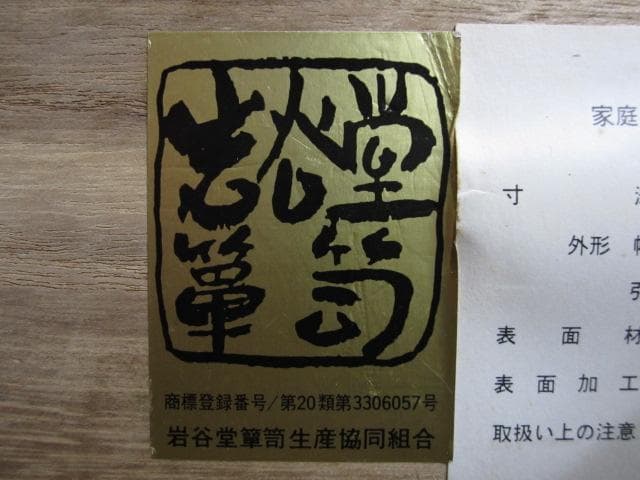 岩谷堂
箪笥
商標登録番号/第20類第3306057号
岩谷堂簞笥生産協同組合
家庭
寸
外形
表面材
表面加工
取扱い上の注意